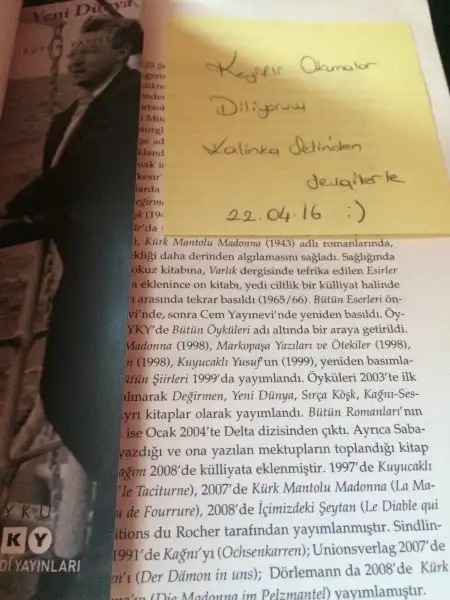 Yeni Dünya
BÜTÜN YAPITLARI
Keyifli Okumalar
Diliyorum
Kalinka Selinden
Sevgilerle
22.04.16 :)
), Kürk Mantolu Madonna (1943) adlı romanlarında,
ekliği daha derinden algılamasını sağladı. Sağlığında
okuz kitabına, Varlık dergisinde tefrika edilen Esirler
a eklenince on kitabı, yedi ciltlik bir külliyat halinde
arasında tekrar basıldı (1965/66). Bütün Eserleri ön-
vi'nde, sonra Cem Yayınevi'nde yeniden basıldı. Öy-
YKY'de Bütün Öyküleri adı altında bir araya getirildi.
Madonna (1998), Markopaşa Yazıları ve Ötekiler (1998),
n (1998), Kuyucaklı Yusuf'un (1999), yeniden basımla-
ütün Şiirleri 1999'da yayımlandı. Öyküleri 2003'te ilk
alınarak Değirmen, Yeni Dünya, Sırça Köşk, Kağnı-Ses-
yrı kitaplar olarak yayımlandı. Bütün Romanları'nın
ise Ocak 2004'te Delta dizisinden çıktı. Ayrıca Saba-
yazdığı ve ona yazılan mektupların toplandığı kitap
ağım 2008'de külliyata eklenmiştir. 1997'de Kuyucaklı
le Taciturne), 2007'de Kürk Mantolu Madonna (La Ma-
u de Fourrure), 2008'de İçimizdeki Şeytan (Le Diable qui
itions du Rocher tarafından yayımlanmıştır. Sindlin-
1991'de Kağnı'yı (Ochsenkarren); Unionsverlag 2007'de
n'ı (Der Dämon in uns); Dörlemann da 2008'de Kürk
(Die Madonna im Pelzmantel) yayımlamıştır.
YKÜ
KY
Dİ YAYINLARI